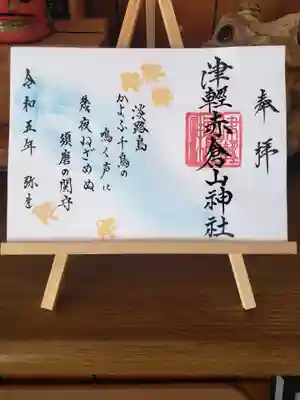 奉拝
津軽赤倉山神社
淡路島
かよふ千鳥の
鳴く声に
幾夜ねざめぬ
須磨の関守
令和五年 弥生